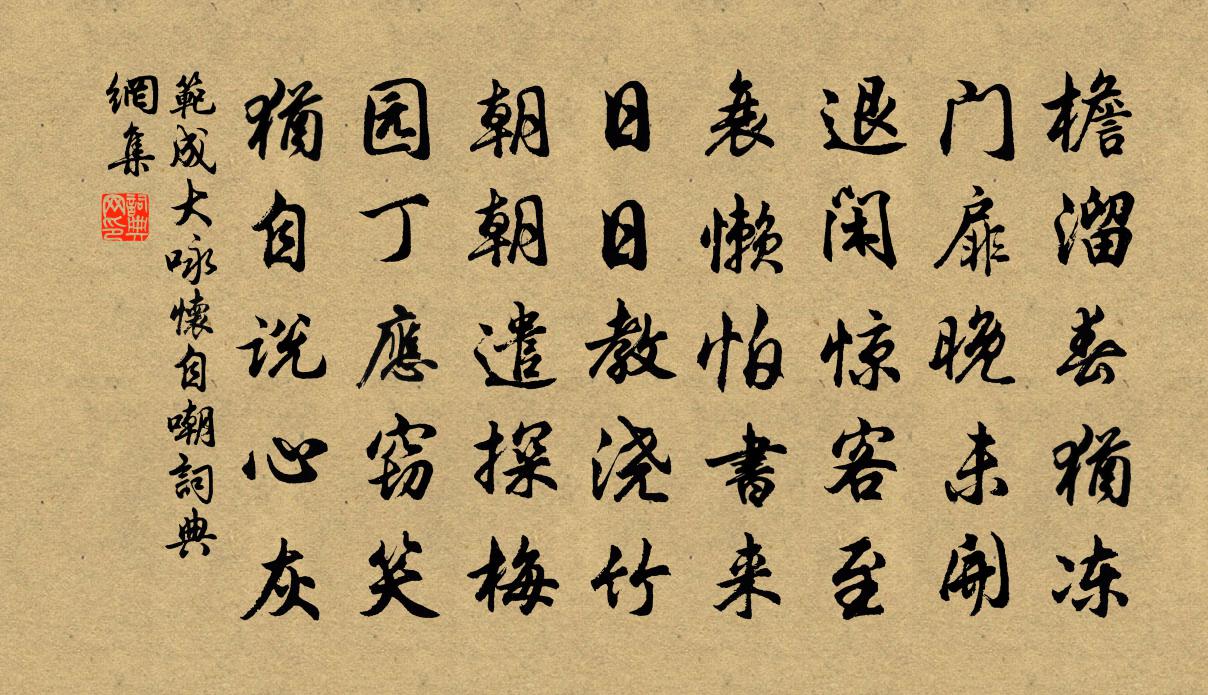 檐溜春犹冻
门扉晚未開
退闲惊客至
衰懒怕書来
日日教浇竹
朝朝遣探梅
园丁應窃笑
猶自说心灰
範成大咏懷自嘲詞典
網集
詞典
网印